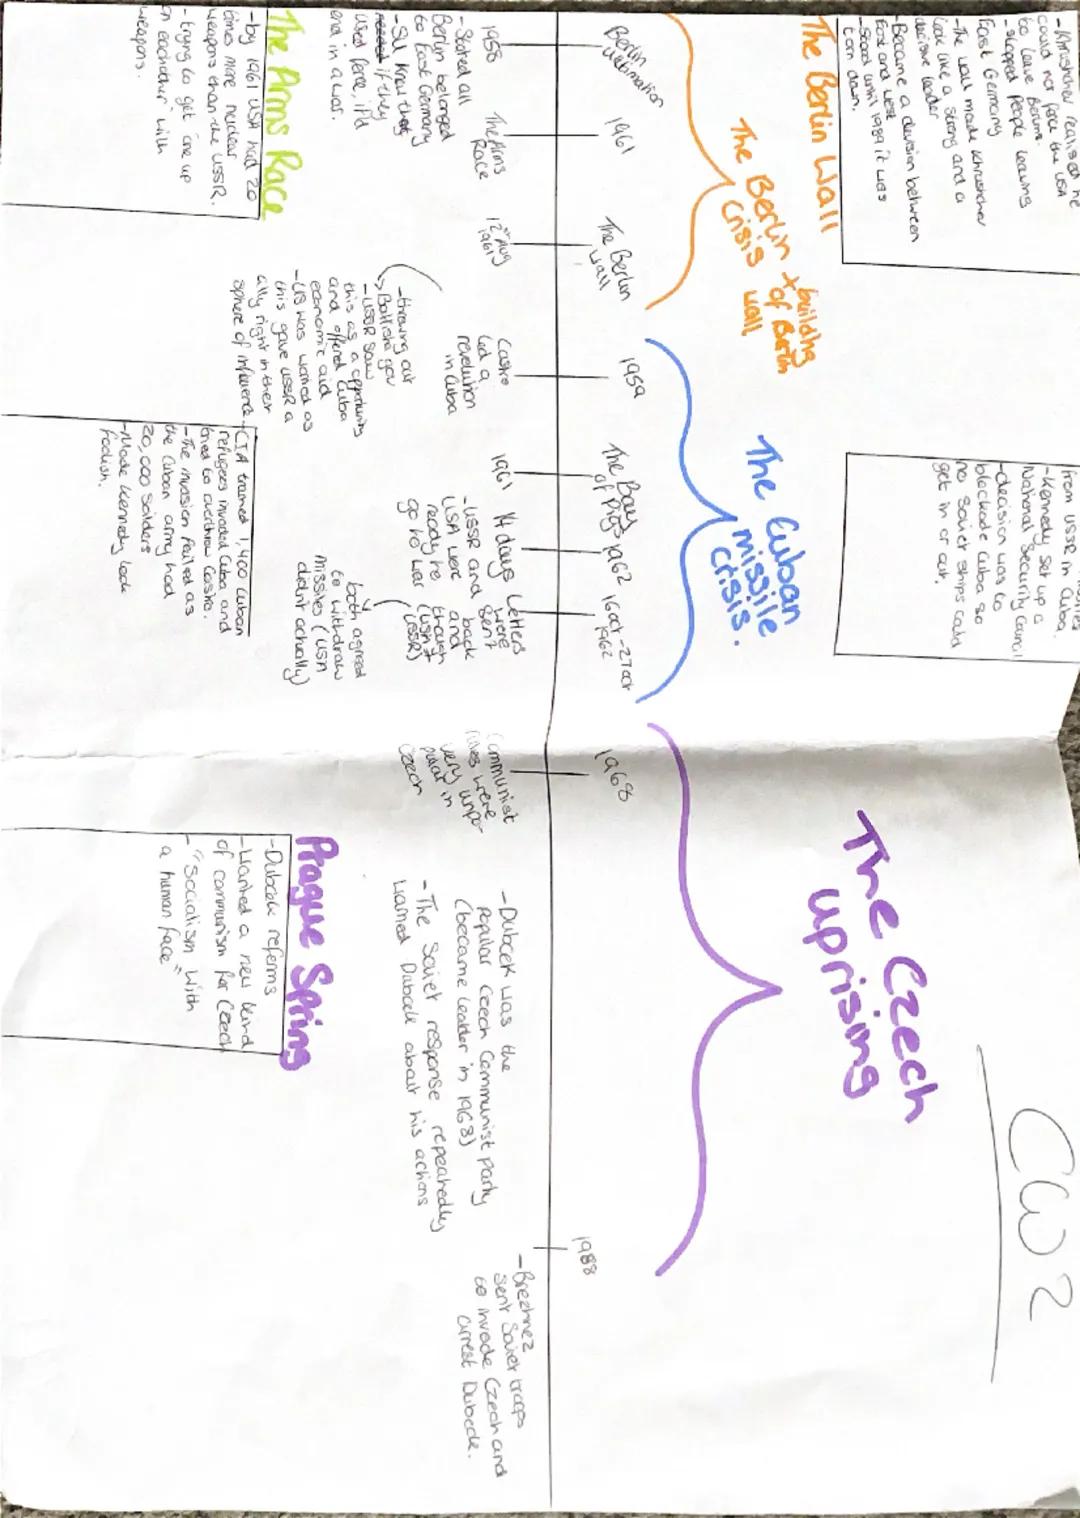 CW2
- Khrushchev realised he
could not force the USA
to leave Berlin.
- stopped people leaving
East Germany
- The wall made Khrushchev
look like a strong and a
decisive leader
- Became a division between
East and West
- Stood until 1989 it was
torn down.
The Berlin Wall
from USSR in Cuba.
- Kennedy set up a
National Security Council
- decision was to
blockade Cuba so
no Soviet ships could
get in or out.
The Berlin + building
Crisis of Berlin
wall
The Cuban
missile
crisis.
The Czech
uprising
Berlin
Ultimation
1961
The Berlin
Wall
1959
The Bay
of Pigs
1962
16oct - 27oct
1962
1968
1988
1958
- Stated all
Berlin belonged
to East Germany
- SU knew that
if they
used force, it'd
end in a war.
The Arms
Race
12th Aug
1961
Castro
led a
revolution
in Cuba
- throwing out
Batista gov
- USSR saw
this as a opportunity
and offered Cuba
economic aid
- US was worried as
this gave USSR a
ally right in their
sphere of influence
1961
14 days
- USSR and
USA were
ready to
go to war
Letters
were
sent
back
and
though
(USA +
USSR)
both agreed
to withdraw
missiles (USA
didn't actually)
Communist
rules were
very unpo-
pular in
Czech
- Dubcek was the
popular Czech Communist party
(became leader in 1968)
- The Soviet response repeatedly
warned Dubcek about his actions
- Brezhnez
sent Soviet troops
to invade Czech and
arrest Dubcek.
The Arms Race
- by 1961 USA had 20
times more nuclear
weapons than the USSR.
- trying to get one up
on eachother with
weapons.
- CIA trained 1,400 Cuban
refugees invaded Cuba and
tried to overthrow Castro.
- The invasion failed as
the Cuban army had
20,000 soliders
- Made Kennedy look
foolish.
Prague Spring
- Dubcek reforms
- Wanted a new kind
of communism for Czech
- "Socialism with
a human face"